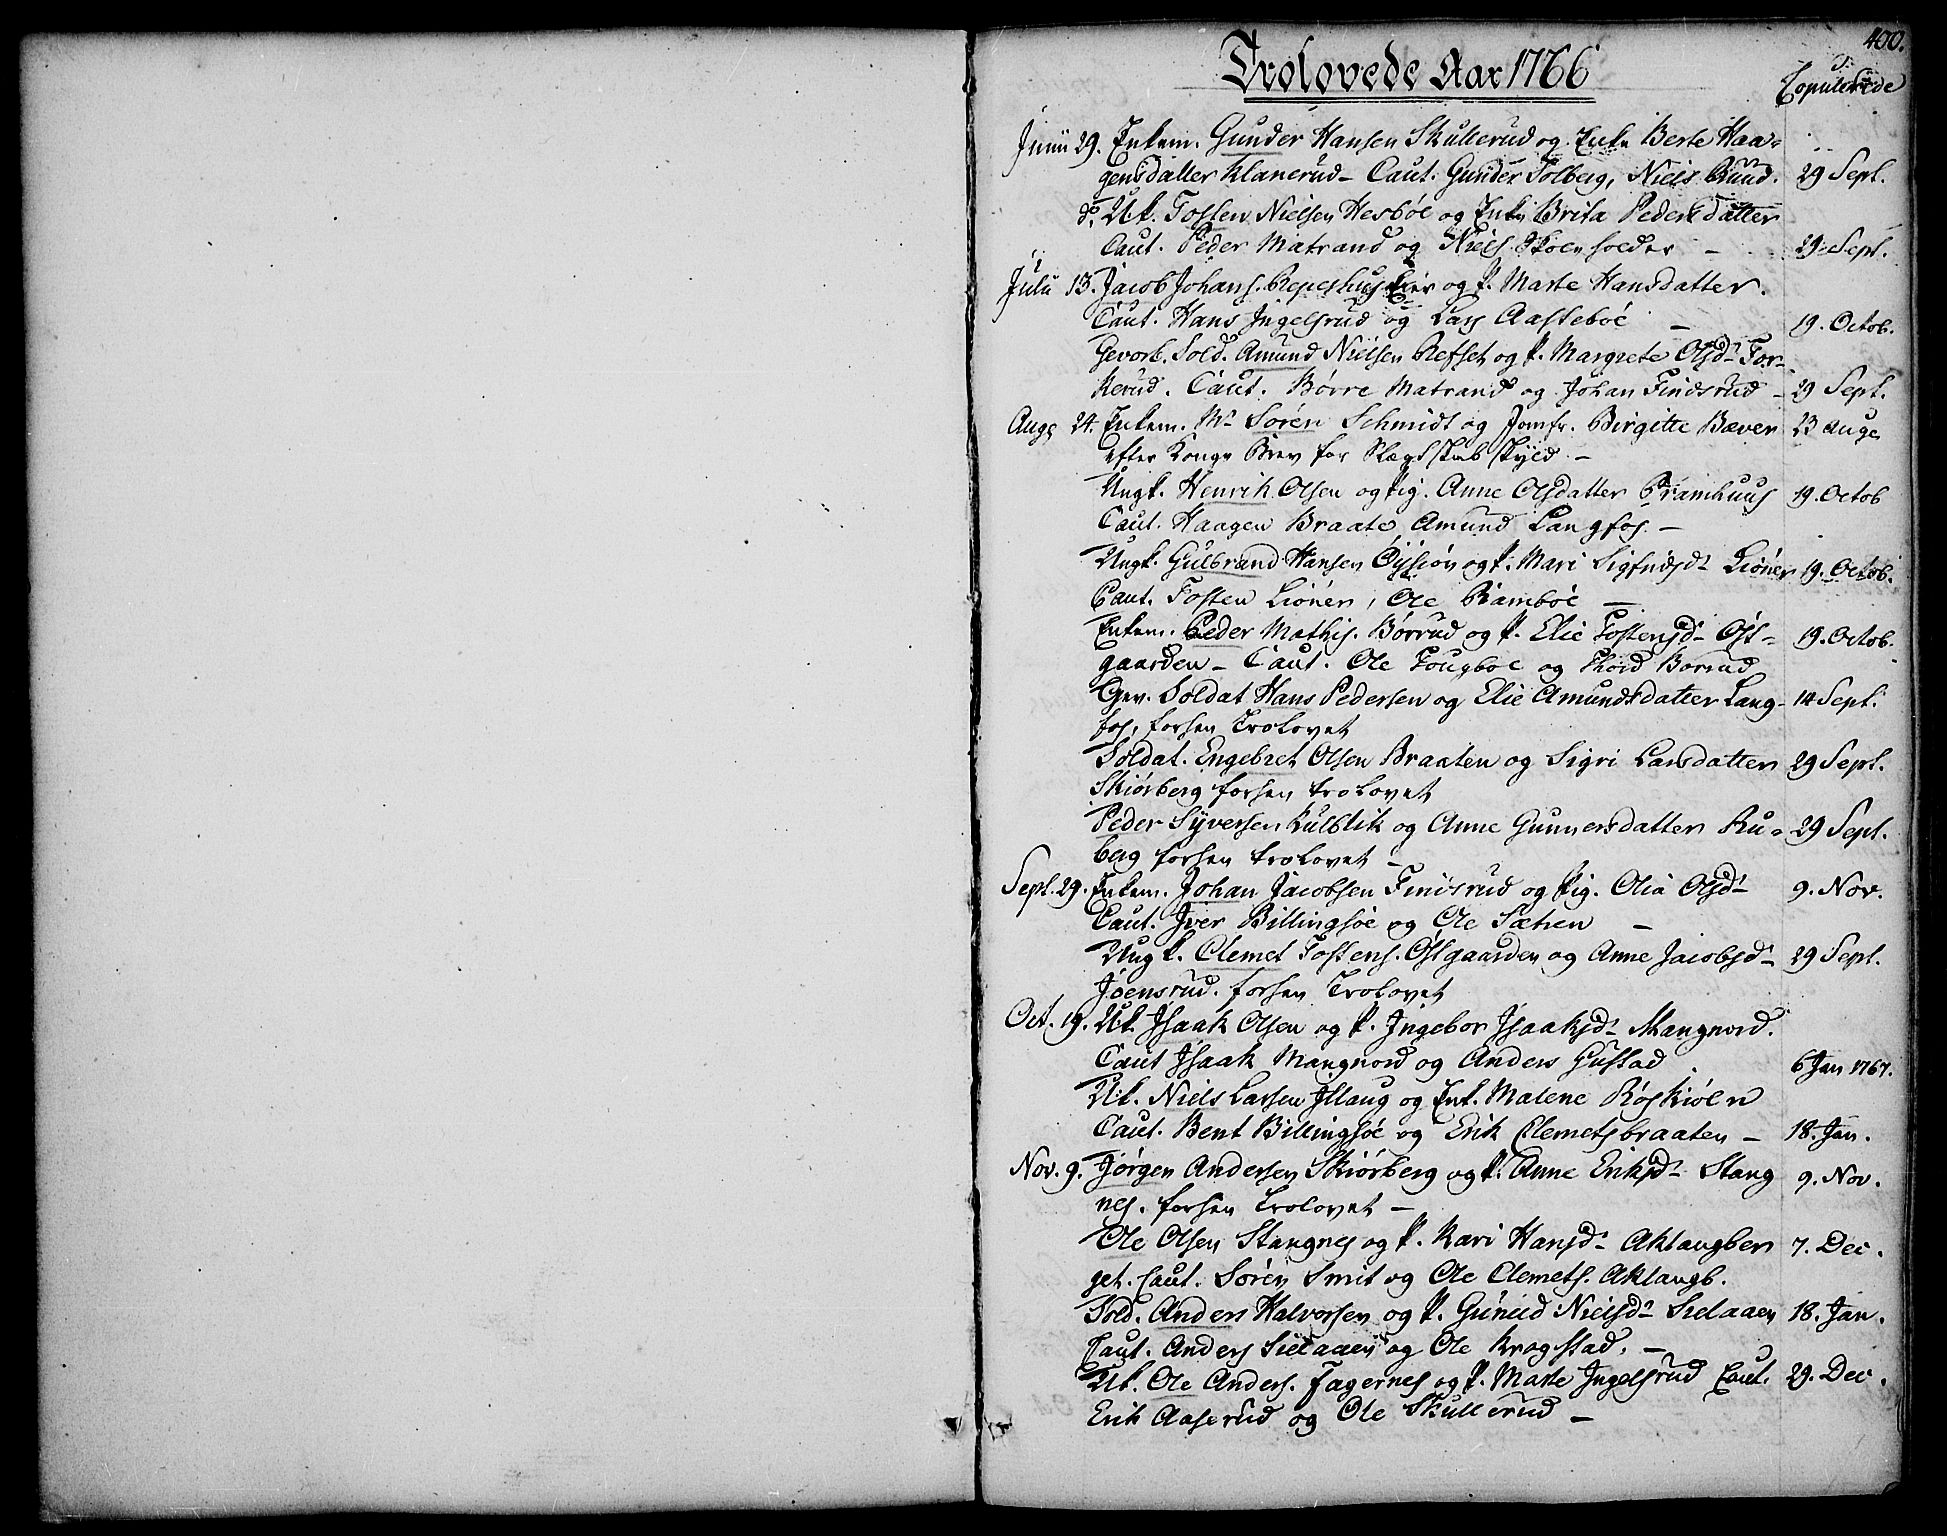 400.
Trolovede Aar 1766
Copulerede
Junii 29. Enkem. Gunder Hansen Skullerud og Enke Berte Haa=
gensdatter Klanerud - Caut. Gunder Tolberg, Niels Ruud. 29 Sept.
do. Uk. Tosten Nielsen Hesböe og Enke Brita Pedersdatter
Caut. Peder Matrand og Niels - 29 Sept.
Julii 13. Jacob Johans. og P. Marte Hansdatter.
Caut. Hans Ingelsrud og Lars Aasseböe - 19. Octob.
Gevorb. Sold. Amund Nielsen Refset og P. Margrete Olsdr For=
kerud. Caut. Börre Matrand og Johan Findsrud - 29 Sept.
Aug. 24. Enkem. Mr Sören Schmidt og Jomfr. Birgitte Bæver 23 Aug.
efter Konge Brev for Slægdskab skyld -
Ungk. Henrik Olsen og Pig. Anne Olsdatter Pramhuus 19. Octob
Caut. Haagen Braate Amund Langfos -
Ungk. Gulbrand Hansen Öysiön og P. Mari Sigfridsdr Liöner 19. Octob.
Caut. Tosten Liöner, Ole Ramböe -
Enkem. Peder Mathis. Börrud og P. Elie Tostensdr Öst= 19. Octob.
gaarden - Caut. Ole Tougboe og Thord Borrud
Gev. Soldat Hans Pedersen og Elie Amundsdatter Lang= 14 Sept.
fos, forhen Trolovet
Soldat. Engebret Olsen Braaten og Sigri Larsdatter 29 Sept.
Skiörberg forhen trolovet
Peder Syversen Kulblik og Anne Gunnersdatter Ru= 29 Sept.
berg forhen trolovet -
Sept. 29. Enkem. Johan Jacobsen Findsrud og Pig. Olia Olsdr 9. Nov.
Caut. Iver Billingsöe og Ole Sætren -
Ungk. Clemet Tostens. Östgaarden og Anne Jacobsdr 29 Sept.
Joensrud. forhen Trolovet
Oct. 19. Uk. Isaak Olsen og P. Ingebor Isaaksdr Mangnord.
Caut Isaak Mangnord og Anders Gustad. 6 Jan 1767.
Uk. Niels Larsen Illaug og Enk. Malene Röskiölen
Caut. Bent Billingsöe og Erik Clemetsbraaten - 18. Jan.
Nov. 9. Jörgen Andersen Skiörberg og P. Anne Eriksdr Stang 9. Nov.
nes. forhen Trolovet -
Ole Olsen Stangnes og P. Kari Hansdr Aklangber 7. Dec.
get. Caut. Sören Smit og Ole Clemets. Aklangb.
Sold. Anders Halvorsen og P. Gunild Nielsdr Sielaaen 18. Jan.
Caut. Anders Sielaaen og Ole Krogstad. -
Uk. Ole Anders. Fagernes og P. Marte Ingelsrud Caut. 29. Dec.
Erik Aaserud og Ole Skullerud -